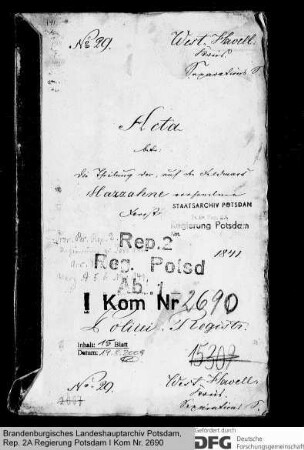 No 29.
West-Havell.
Kreis.
Separations S.
Acta
betr.
die Theilung der, auf der Feldmark
Marzahne
STAATSARCHIV POTSDAM
Pr.Br. Rep. 2A
Regierung Potsdam
1841
Rep. 2
Reg. Potsd
Ab. 1
I Kom Nr 2690
Registr.
Inhalt: 15 Blatt
Datum:
15309
No. 29.
West-Havell.
Kreis.
Separations S.
Brandenburgisches Landeshauptarchiv Potsdam,
Rep. 2A Regierung Potsdam I Kom Nr. 2690
Gefördert durch
DFG Deutsche
Forschungsgemeinschaft